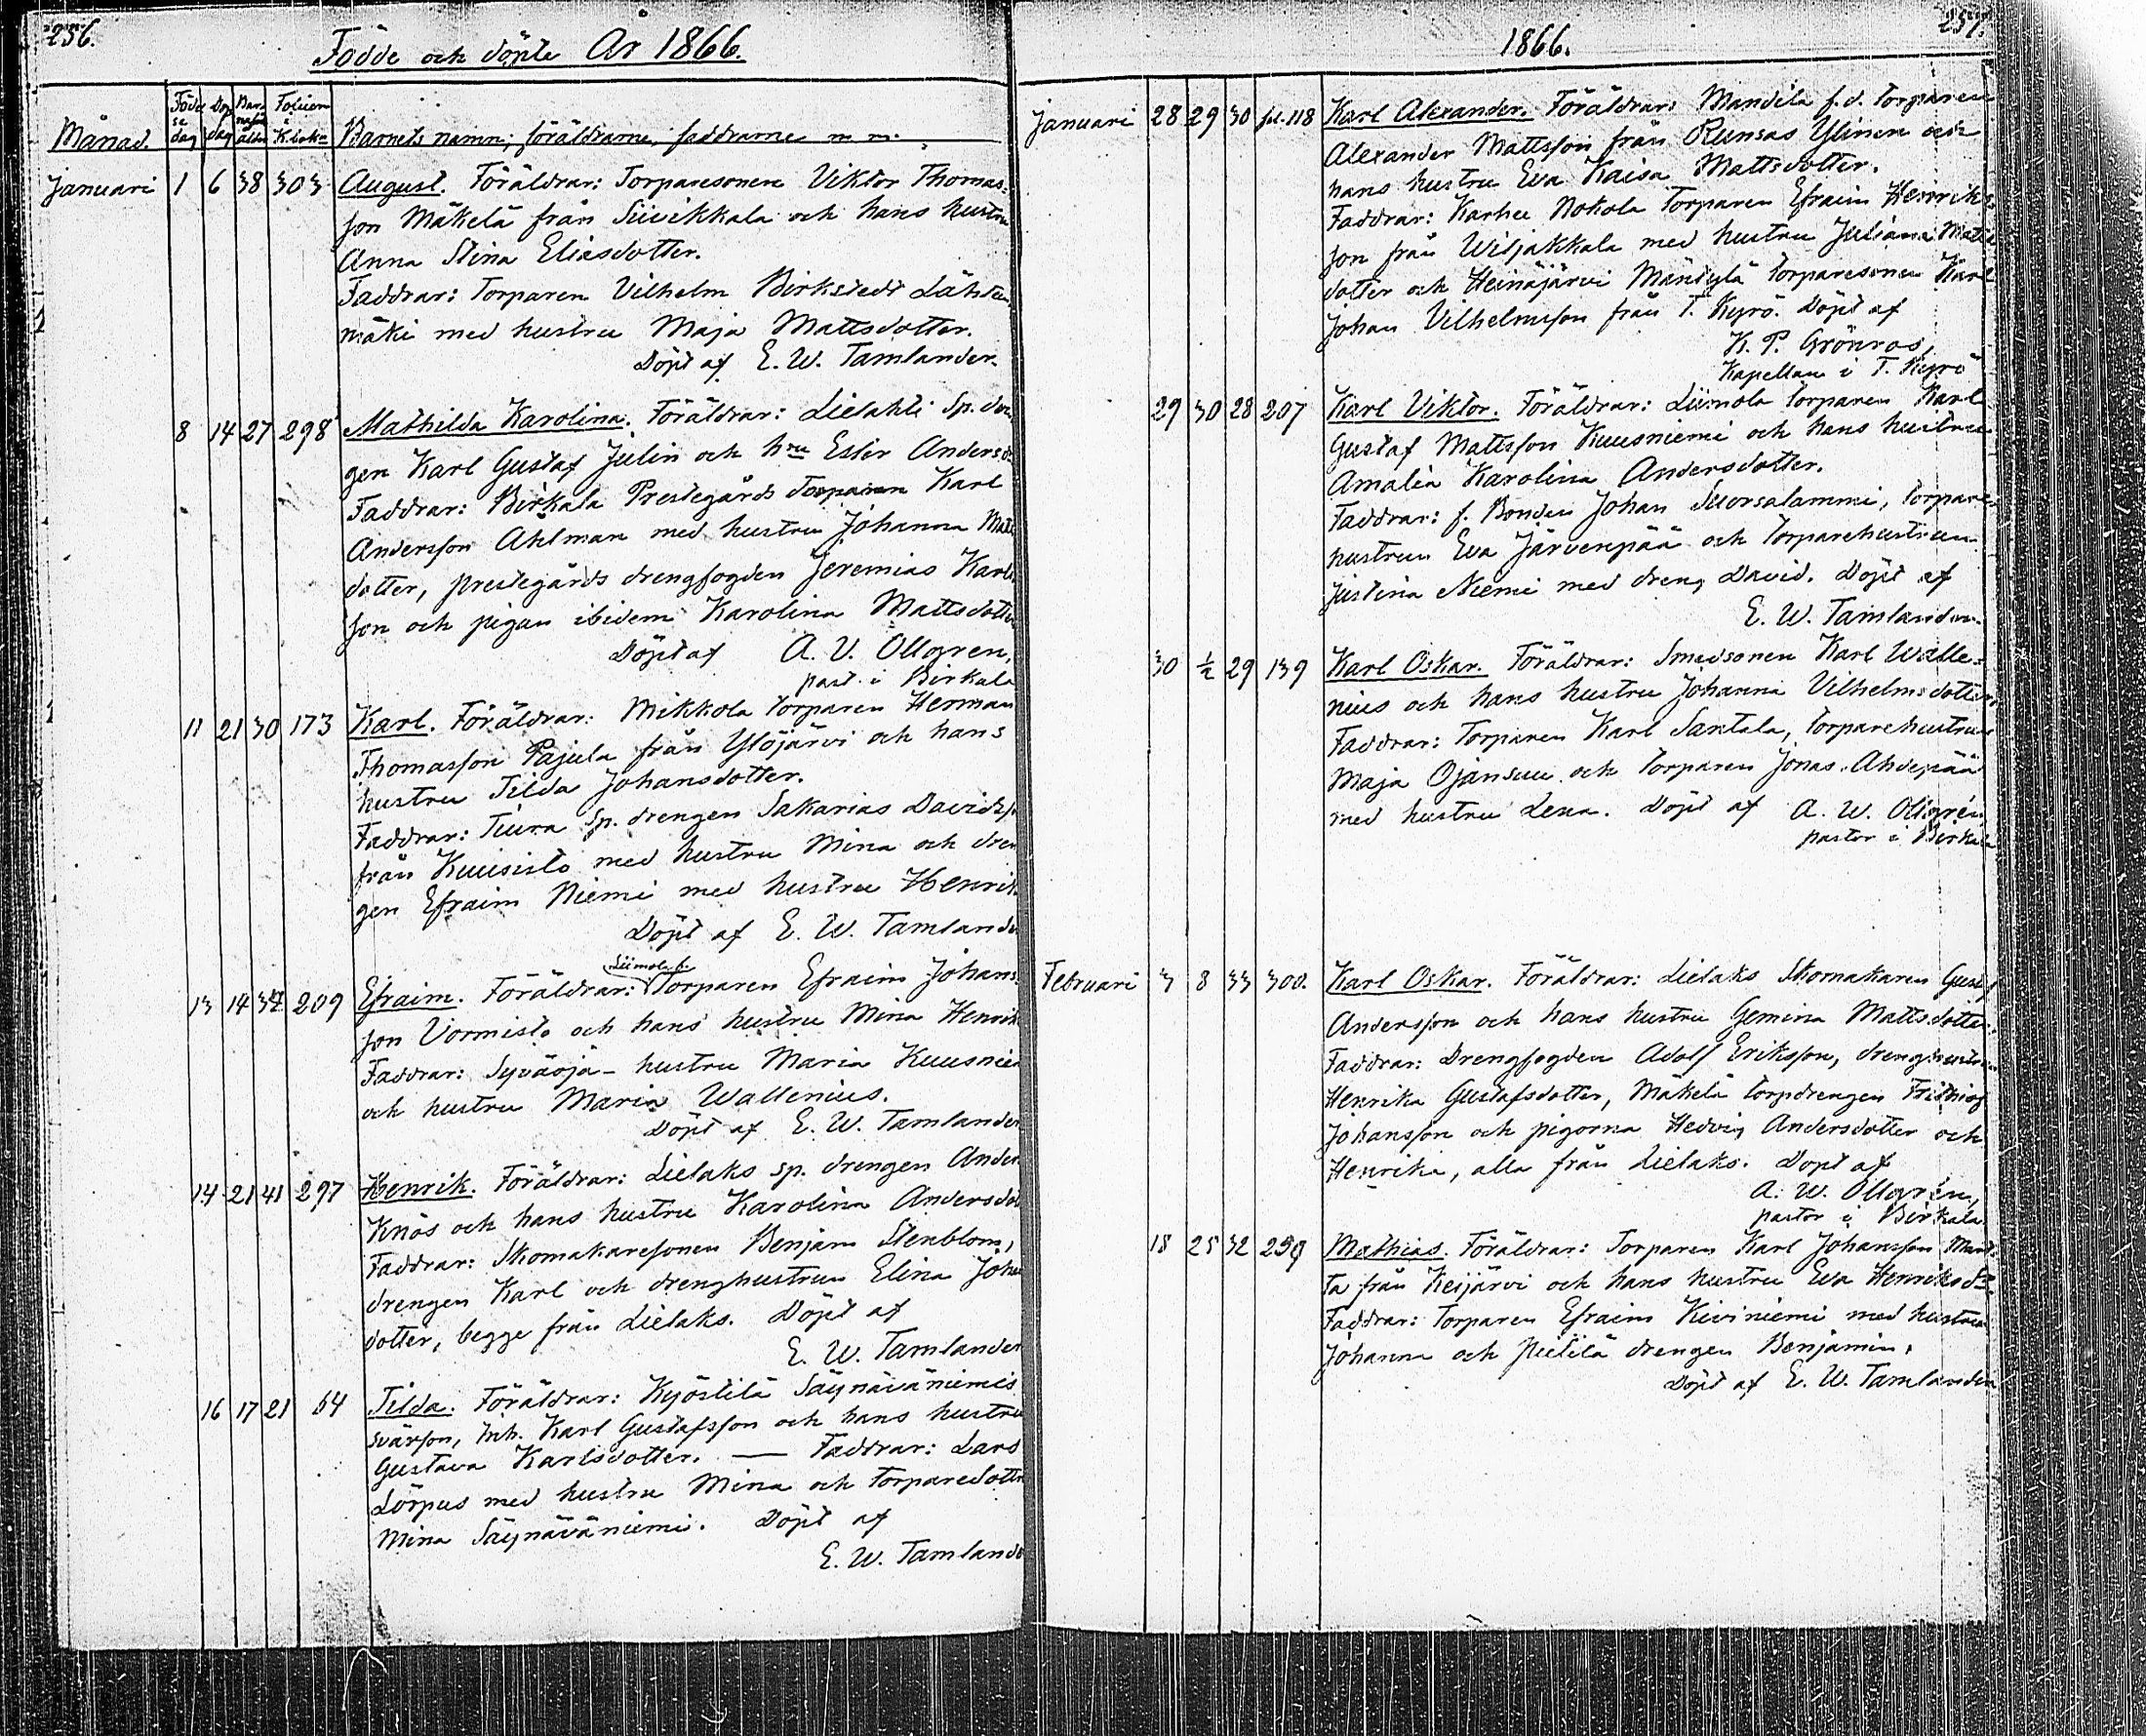 256.
Födde och döpte År 1866.
Månad. Födelse dag Dop dag Barnaföd. ålder Folium i K.bok. Barnets namn, föräldrarne, faddrarne m. m.
Januari 1 6 38 303 August. Föräldrar: Torparesonen Viktor Thomas-
son Mäkelä från Siivikkala och hans hustru
Anna Stina Eliasdotter.
Faddrar: Torparen Vilhelm Birkstedt Lähteen
mäki med hustru Maja Mattsdotter.
Döpt af E. W. Tamlander.
8 14 27 298 Mathilda Karolina. Föräldrar: Lielahti Sp. dren
gen Karl Gustaf Julin och hru Ester Andersd
Faddrar: Birkala Prestegårds Torparen Karl
Andersson Ahlman med hustru Johanna Matts
dotter, prestegårds drengfogden Jeremias Karls
son och pigan ibidem Karolina Mattsdotter
Döpt af A. V. Ollgren,
past. i Birkala
11 21 30 173 Karl. Föräldrar: Mikkola torparen Herman
Thomasson Pajula från Ylöjärvi och hans
hustru Tilda Johansdotter.
Faddrar: Tiura Sp. drengen Sakarias Davidss
från Kuusisto med hustru Mina och dren
gen Efraim Niemi med hustru Henrik
Döpt af E. W. Tamlande
Liimola
13 14 34 209 Efraim. Föräldrar: Torparen Efraim Johans
son Vormisto och hans hustru Mina Henrik
Faddrar: Syväoja- hustru Maria Kuusnie
och hustru Maria Wallenius.
Döpt af E. W. Tamlander
14 21 41 297 Henrik. Föräldrar: Lielaks sp. drengen Ander
Knös och hans hustru Karolina Andersdot
Faddrar: Skomakaresonen Benjam Stenblom,
drengen Karl och drenghustrun Elina Joha
dotter, begge från Lielaks. Döpt af
E. W. Tamlander
16 17 21 64 Tilda. Föräldrar: Kyöstilä Säynäväniemis
svärson, Inh. Karl Gustafsson och hans hustru
Gustava Karlsdotter. — Faddrar: Lars
Lörpus med hustru Mina och torparedottr
Mina Säynäväniemi. Döpt af
E. W. Tamlande
257.
1866.
Januari 28 29 30 fol. 118 Karl Alexander. Föräldrar: Mandila f.d. torparen
Alexander Mattsson från Runsas Ylinen och
hans hustru Eva Kaisa Mattsdotter.
Faddrar: Karhu Nokola torparen Efraim Henriks
son från Wiljakkala med hustru Juliana Matts
dotter och Heinäjärvi Mäntylä torparesonen Karl
Johan Vilhelmsson från T. Kyrö. Döpt af
K. P. Grönros,
Kapellan i T. Kyrö
29 30 28 207 Karl Viktor. Föräldrar: Liimola torparen Karl
Gustaf Mattsson Kuusniemi och hans hustru
Amalia Karolina Andersdotter.
Faddrar: f. Bonden Johan Suorsalammi, torpare
hustrun Eva Järvenpää och torparehustrun
Justina Niemi med dreng David. Döpt af
E. W. Tamlander.
30 ½ 29 139 Karl Oskar. Föräldrar: Smedsonen Karl Walle-
nius och hans hustru Johanna Vilhelmsdotter.
Faddrar: Torparen Karl Santala, torparehustrun
Maja Ojansuu och torparen Jonas Ahdepää
med hustru Lena. Döpt af A. W. Ollgrén.
pastor i Birkala
Februari 3 8 33 300. Karl Oskar. Föräldrar: Lielaks Skomakaren Gustaf
Andersson och hans hustru Gemina Mattsdotter.
Faddrar: Drengfogden Adolf Eriksson, drenghustrun
Henrika Gustafsdotter, Mäkelä torpdrengen Frithiof
Johansson och pigorna Hedvig Andersdotter och
Henrika, alla från Lielaks. Döpt af
A. W. Ollgrén,
pastor i Birkala
18 25 32 259 Mathias. Föräldrar: Torparen Karl Johansson Mant-
ta från Keijärvi och hans hustru Eva Henriksdr.
Faddrar: Torparen Efraim Kiviniemi med hustru
Johanna och Pietilä drengen Benjamin.
Döpt af E. W. Tamlander